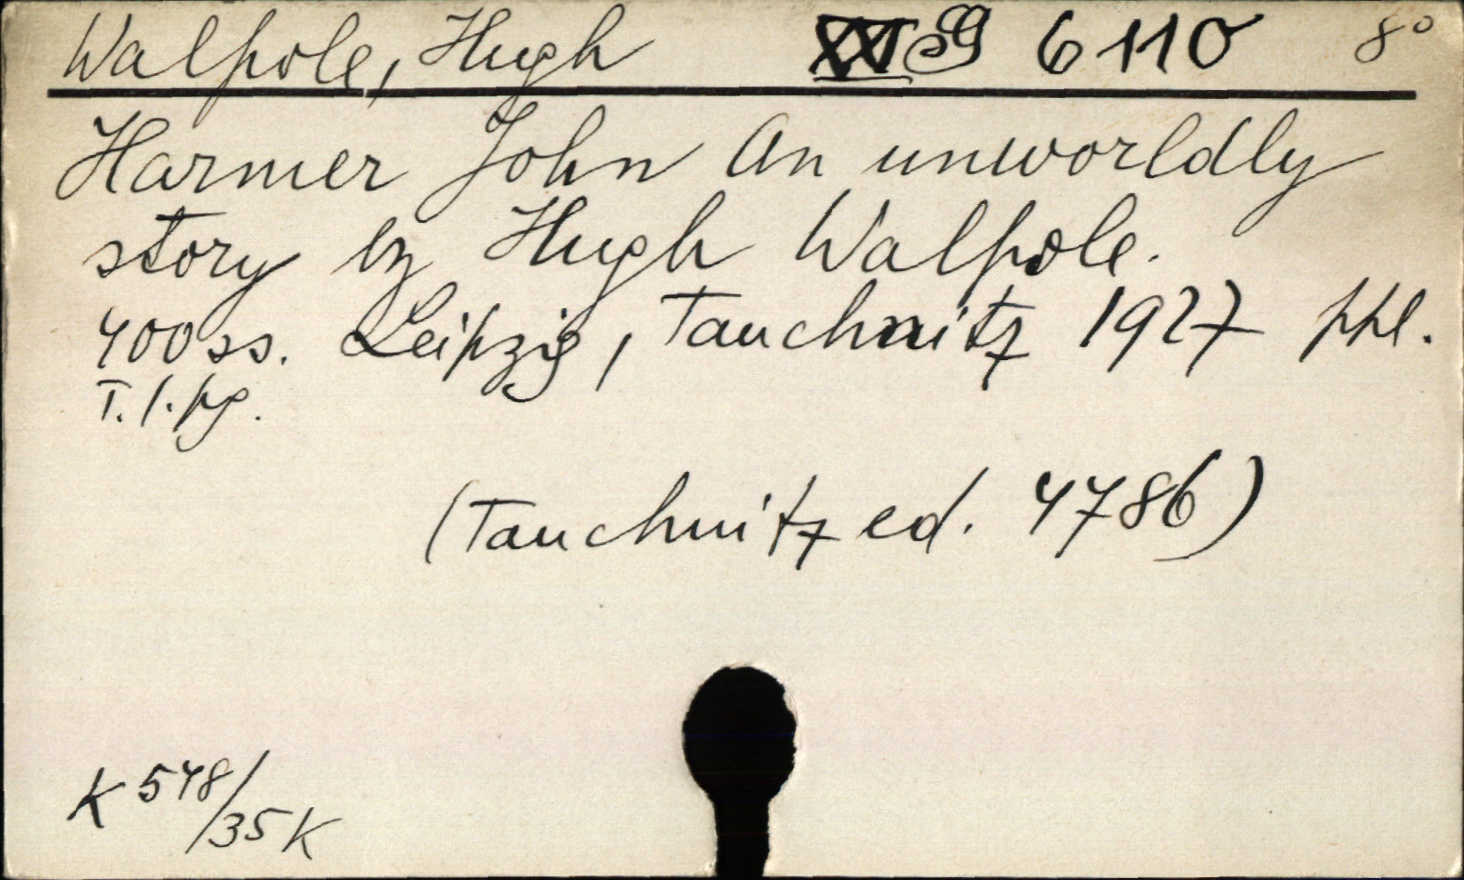 Walpole, Hugh 6110 8°
Harmer John An unworldly
story by Hugh Walpole.
400 ss. Leipzig, Tauchnitz 1927 ppl.
T. l. pg.
(Tauchnitz ed. 4786)
K 548/35 K